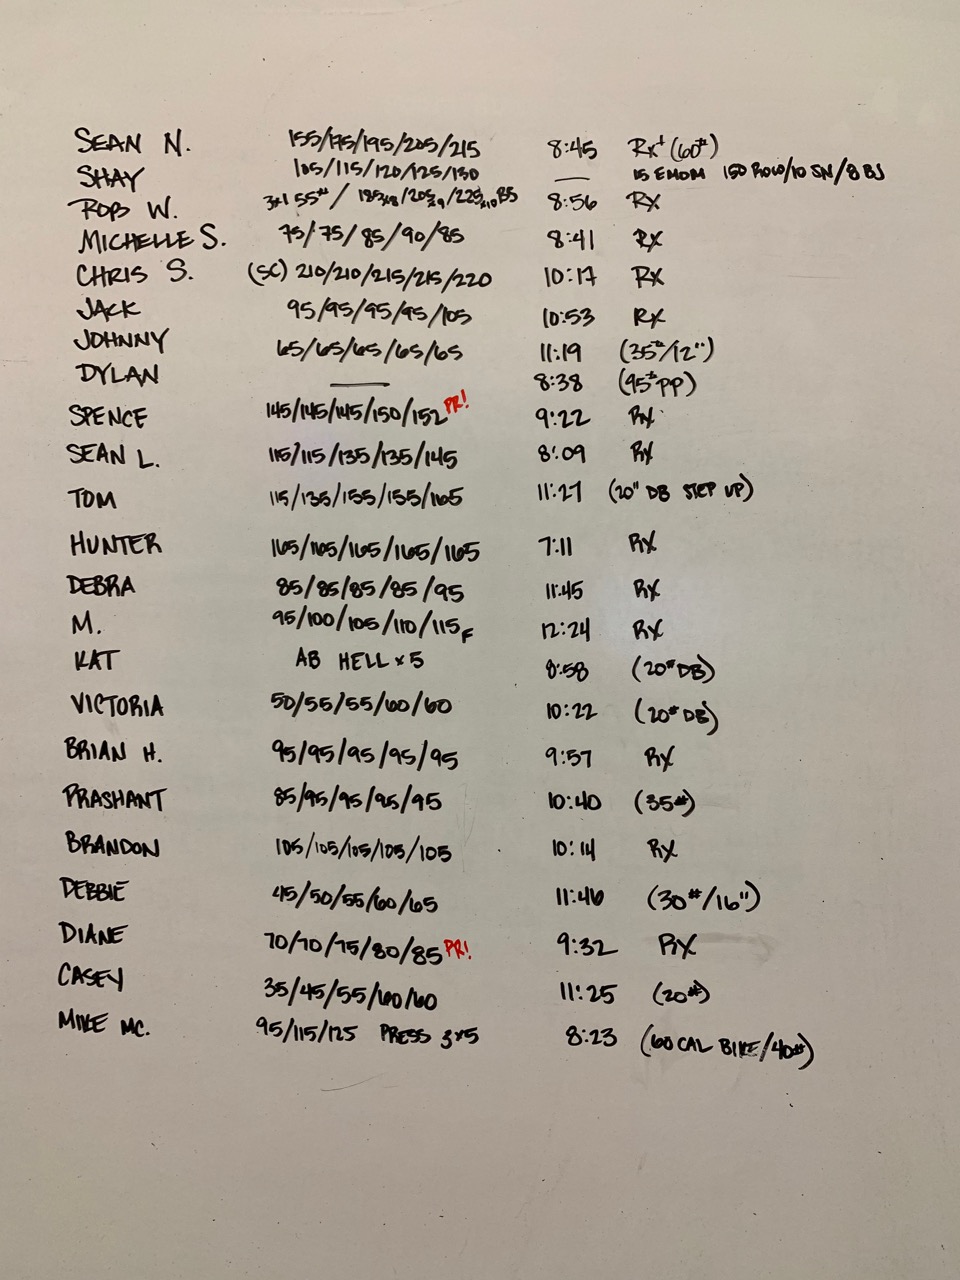 SEAN N. 155/175/195/205/215 8:45 RX+ (60#)
SHAY 105/115/120/125/130 — 15 EMOM 150 ROW/10 SN/8 BJ
ROB W. 3x1 55# / 185x8/205x9/225x10 BS 8:56 RX
MICHELLE S. 75/75/85/90/85 8:41 RX
CHRIS S. (SC) 210/210/215/215/220 10:17 RX
JACK 95/95/95/95/105 10:53 RX
JOHNNY 65/65/65/65/65 11:19 (35#/12")
DYLAN — 8:38 (95# PP)
SPENCE 145/145/145/150/152 PR! 9:22 RX
SEAN L. 115/115/135/135/145 8:09 RX
TOM 115/135/155/155/165 11:27 (20" DB STEP UP)
HUNTER 165/165/165/165/165 7:11 RX
DEBRA 85/85/85/85/95 11:45 RX
M. 95/100/105/110/115F 12:24 RX
KAT AB HELL x 5 8:58 (20# DB)
VICTORIA 50/55/55/60/60 10:22 (20# DB)
BRIAN H. 95/95/95/95/95 9:57 RX
PRASHANT 85/95/95/95/95 10:40 (35#)
BRANDON 105/105/105/105/105 10:14 RX
DEBBIE 45/50/55/60/65 11:46 (30#/16")
DIANE 70/70/75/80/85 PR! 9:32 RX
CASEY 35/45/55/60/60 11:25 (20#)
MIKE MC. 95/115/125 PRESS 3x5 8:23 (60 CAL BIKE/40#)